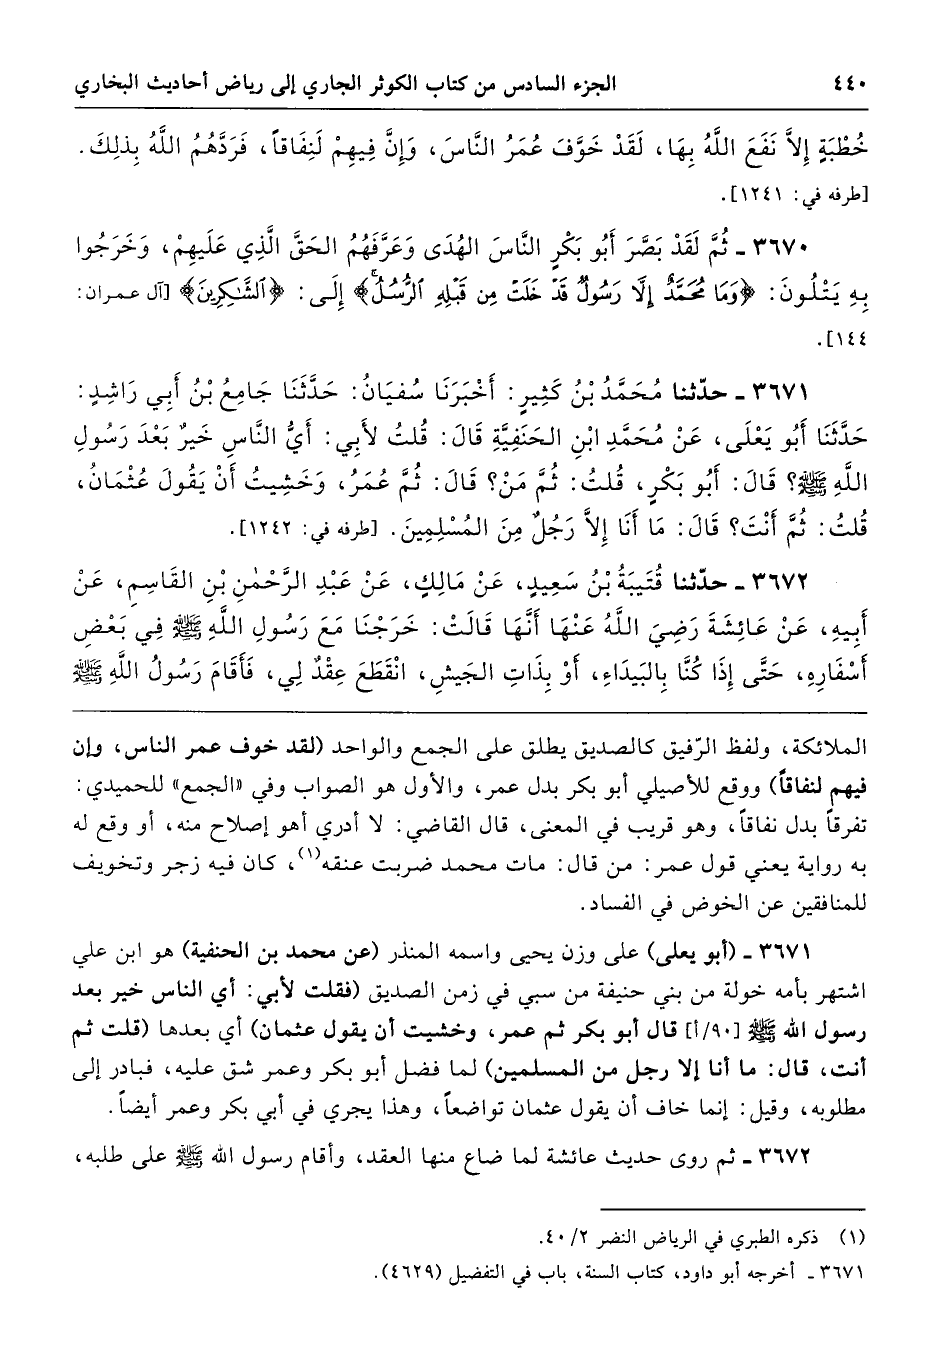 ٤٤٠ الجزء السادس من كتاب الكوثر الجاري إلى رياض أحاديث البخاري
خُطْبَةٍ إِلاَّ نَفَعَ اللَّهُ بِهَا، لَقَدْ خَوَّفَ عُمَرُ النَّاسَ، وَإِنَّ فِيهِمْ لَنِفَاقاً، فَرَدَّهُمُ اللَّهُ بِذلِكَ.
[طرفه في: ١٢٤١].
٣٦٧٠ ـ ثُمَّ لَقَدْ بَصَّرَ أَبُو بَكْرٍ النَّاسَ الهُدَى وَعَرَّفَهُمُ الحَقَّ الَّذِي عَلَيهِمْ، وَخَرَجُوا
بِهِ يَتْلُونَ: ﴿وَمَا مُحَمَّدٌ إِلَّا رَسُولٌ قَدْ خَلَتْ مِن قَبْلِهِ ٱلرُّسُلُۚ﴾ إِلَى: ﴿ٱلشَّٰكِرِينَ﴾ [آل عمران:
١٤٤].
٣٦٧١ ـ حدّثنا مُحَمَّدُ بْنُ كَثِيرٍ: أَخْبَرَنَا سُفيَانُ: حَدَّثَنَا جَامِعُ بْنُ أَبِي رَاشِدٍ:
حَدَّثَنَا أَبُو يَعْلَى، عَنْ مُحَمَّدِ ابْنِ الحَنَفِيَّةِ قَالَ: قُلتُ لأَبِي: أَيُّ النَّاسِ خَيرٌ بَعْدَ رَسُولِ
اللَّهِ ﷺ؟ قَالَ: أَبُو بَكْرٍ، قُلتُ: ثُمَّ مَنْ؟ قَالَ: ثُمَّ عُمَرُ، وَخَشِيتُ أَنْ يَقُولَ عُثْمَانُ،
قُلتُ: ثُمَّ أَنْتَ؟ قَالَ: مَا أَنَا إِلاَّ رَجُلٌ مِنَ المُسْلِمِينَ. [طرفه في: ١٢٤٢].
٣٦٧٢ ـ حدّثنا قُتَيبَةُ بْنُ سَعِيدٍ، عَنْ مَالِكٍ، عَنْ عَبْدِ الرَّحْمٰنِ بْنِ القَاسِمِ، عَنْ
أَبِيهِ، عَنْ عَائِشَةَ رَضِيَ اللَّهُ عَنْهَا أَنَّهَا قَالَتْ: خَرَجْنَا مَعَ رَسُولِ اللَّهِ ﷺ فِي بَعْضِ
أَسْفَارِهِ، حَتَّى إِذَا كُنَّا بِالبَيدَاءِ، أَوْ بِذَاتِ الجَيشِ، انْقَطَعَ عِقْدٌ لِي، فَأَقَامَ رَسُولُ اللَّهِ ﷺ
الملائكة، ولفظ الرّفيق كالصديق يطلق على الجمع والواحد (لقد خوف عمر الناس، وإن
فيهم لنفاقاً) ووقع للأصيلي أبو بكر بدل عمر، والأول هو الصواب وفي «الجمع» للحميدي:
تفرقاً بدل نفاقاً، وهو قريب في المعنى، قال القاضي: لا أدري أهو إصلاح منه، أو وقع له
به رواية يعني قول عمر: من قال: مات محمد ضربت عنقه(١)، كان فيه زجر وتخويف
للمنافقين عن الخوض في الفساد.
٣٦٧١ ـ (أبو يعلى) على وزن يحيى واسمه المنذر (عن محمد بن الحنفية) هو ابن علي
اشتهر بأمه خولة من بني حنيفة من سبي في زمن الصديق (فقلت لأبي: أي الناس خير بعد
رسول الله ﷺ [٩٠/أ] قال أبو بكر ثم عمر، وخشيت أن يقول عثمان) أي بعدها (قلت ثم
أنت، قال: ما أنا إلا رجل من المسلمين) لما فضل أبو بكر وعمر شق عليه، فبادر إلى
مطلوبه، وقيل: إنما خاف أن يقول عثمان تواضعاً، وهذا يجري في أبي بكر وعمر أيضاً.
٣٦٧٢ ـ ثم روى حديث عائشة لما ضاع منها العقد، وأقام رسول الله ﷺ على طلبه،
(١) ذكره الطبري في الرياض النضر ٢/ ٤٠.
٣٦٧١ ـ أخرجه أبو داود، كتاب السنة، باب في التفضيل (٤٦٢٩).